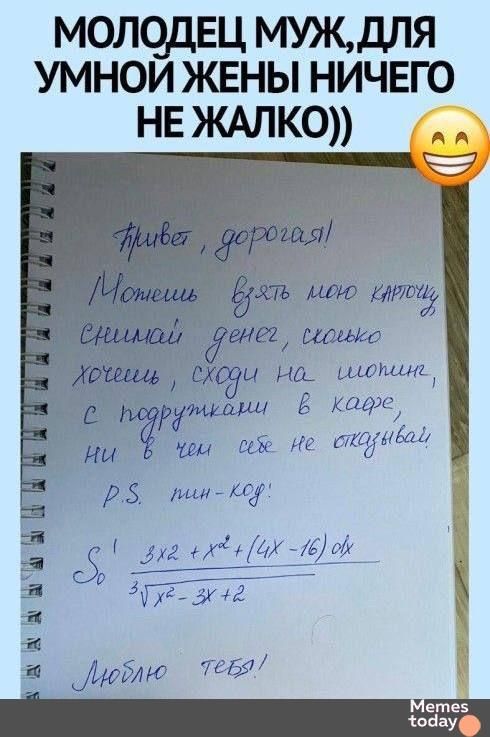 МОЛОДЕЦ МУЖ, ДЛЯ
УМНОЙ ЖЕНЫ НИЧЕГО
НЕ ЖАЛКО))
Привет, дорогая!
Можешь взять мою карточку
снимай денег, сколько
хочешь, сходи на шопинг,
с подружками в кафе,
ни в чем себе не отказывай
P.S. пин-код:
∫₀¹ 3x2 + x² + (4x - 16) dx
³√x² - 3x + 2
Люблю тебя!
Memes
today